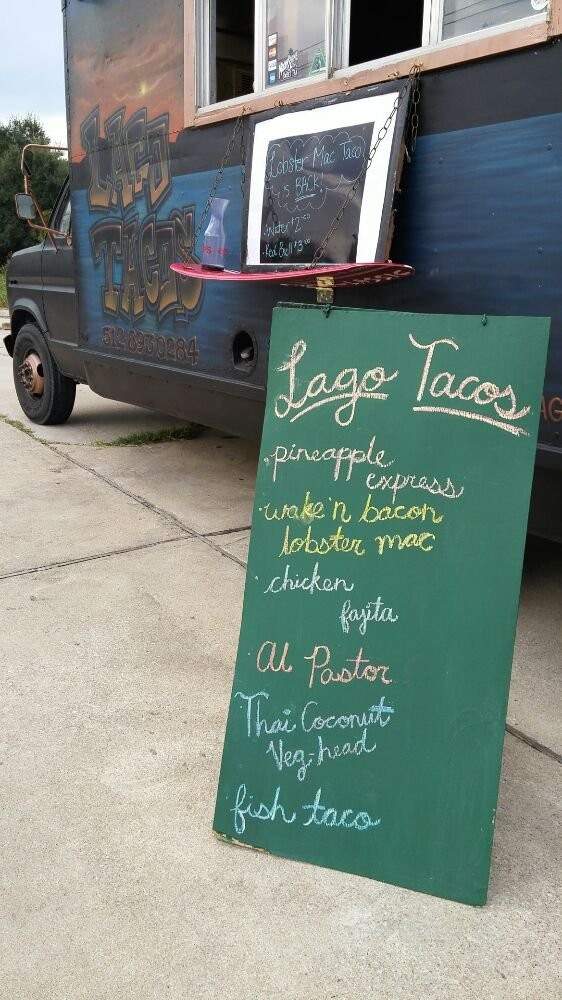 LAGO
TACOS
512 893 0284
Lobster Mac Taco
is BACK.
Water $2.00
Red Bull $3.00
Lago Tacos
pineapple
express
wake'n bacon
lobster mac
chicken
fajita
Al Pastor
Thai Coconut
Veg-head
fish taco
AG